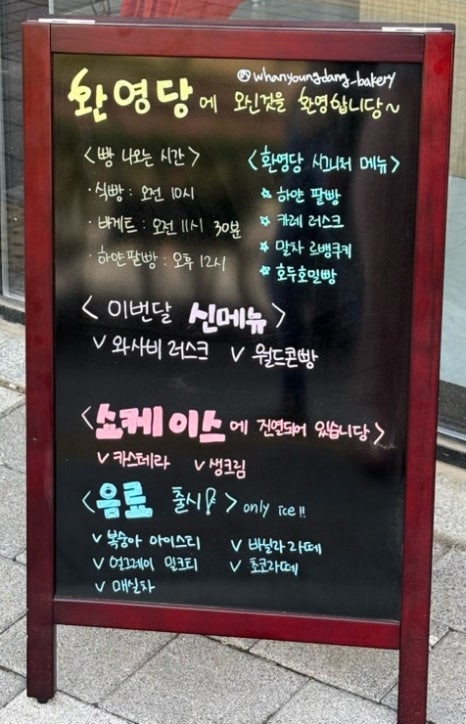 @whanyoungdang_bakery
환영당에 오신것을 환영합니당~
<빵 나오는 시간>
· 식빵 : 오전 10시
· 바게트 : 오전 11시 30분
· 하얀팥빵 : 오후 12시
<환영당 시그니처 메뉴>
☆ 하얀 팥빵
☆ 카레 러스크
☆ 말차 르뱅쿠키
☆ 호두호밀빵
<이번달 신메뉴>
V 와사비 러스크 V 월드콘빵
<쇼케이스에 진열되어 있습니당>
V 카스테라 V 생크림
<음료 출시> only ice!!
V 복숭아 아이스티 V 바닐라 라떼
V 얼그레이 밀크티 V 초코라떼
V 매실차